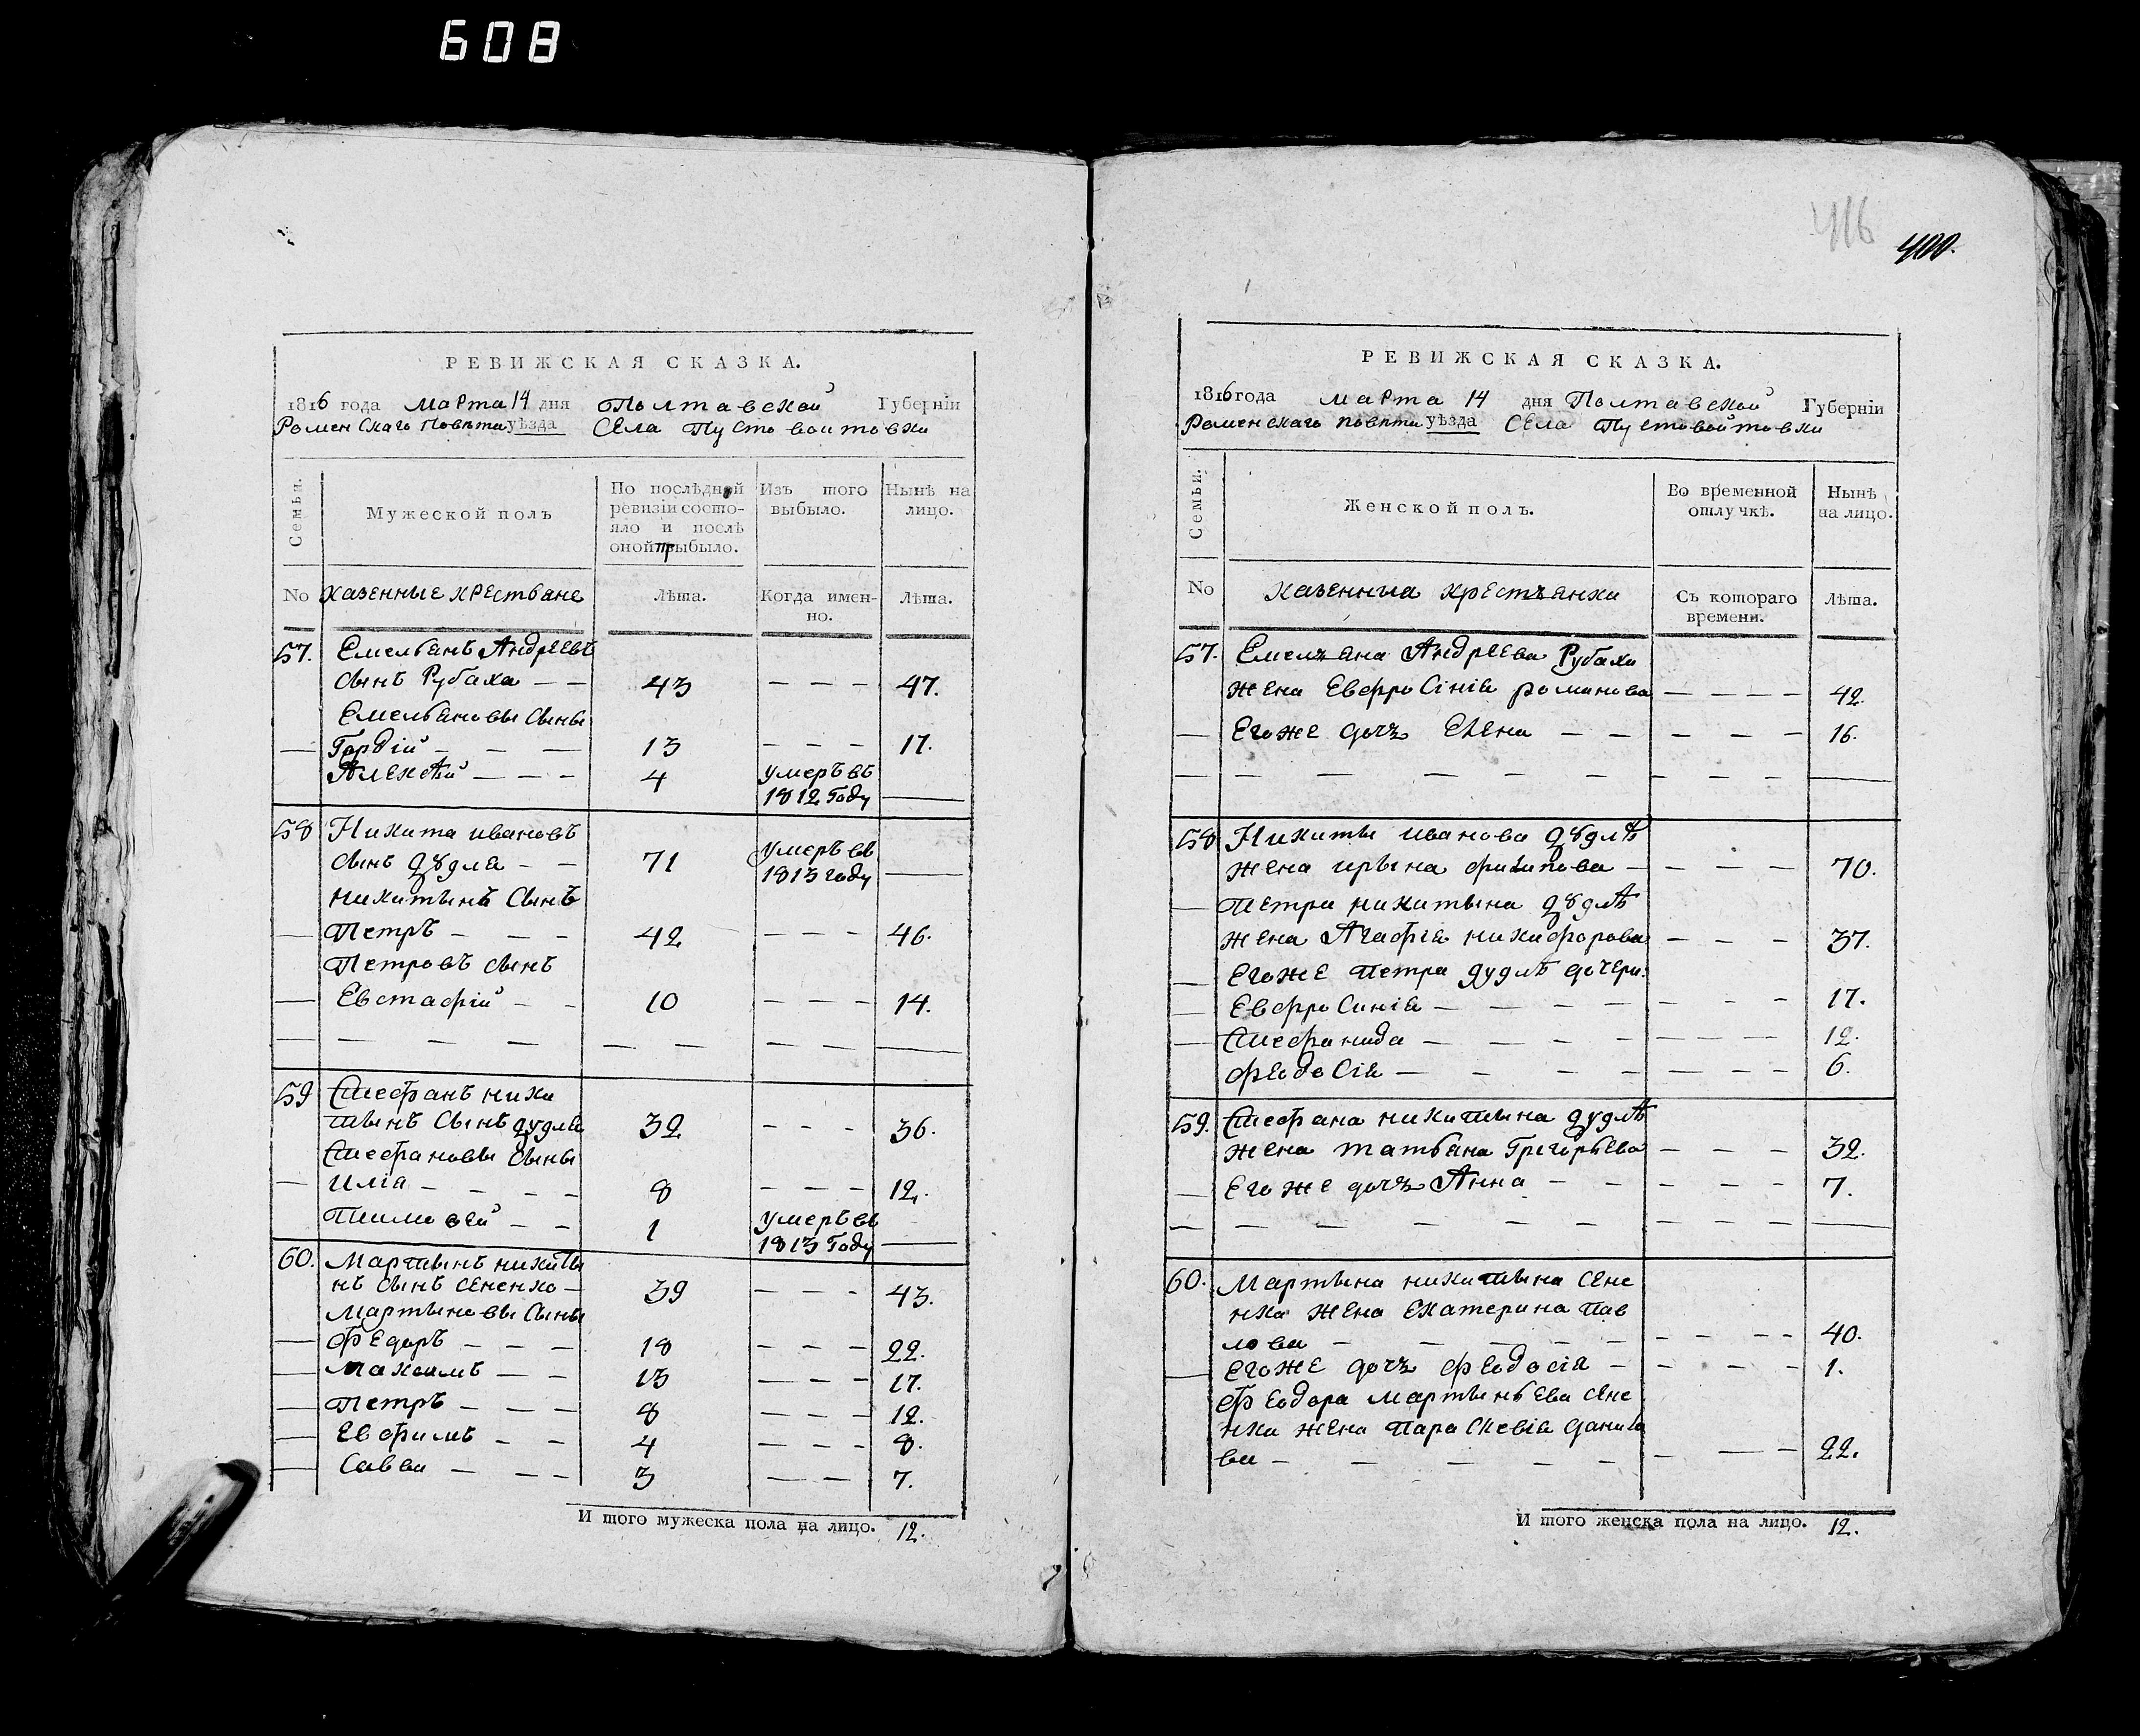 608
РЕВИЖСКАЯ СКАЗКА.
1816 года Марта 14 дня Полтавской Губерніи
Роменскаго Повѣта уѣзда Села Пустовойтовки
Семьи.
Мужеской полъ
По послѣдней ревизіи состояло и послѣ оной прибыло.
Изъ того выбыло.
Нынѣ на лицо.
No казенные крестьяне Лѣта. Когда именно. Лѣта.
57. Емельянъ Андреевъ
сынъ Рубаха — — 43 — — — 47.
Емельяновы сыны
— Гордій — — — 13 — — — 17.
Алексѣй — — — 4 умеръ въ
1812 Году —
58 Никита ивановъ
сынъ дудла — — 71 умеръ въ
1813 году —
никитынъ сынъ
— Петръ — — — 42 — — — 46.
Петровъ сынъ
— Евстафій — — 10 — — — 14.
59 Стефанъ ники
тынъ сынъ дудла 32 — — — 36.
Стефановы сыны
— Иліа — — — — 8 — — — 12.
Тимофей — — 1 умеръ въ
1813 Году —
60. Мартынъ никиты
нъ сынъ сененко — 39 — — — 43.
Мартыновы сыны
— Федоръ — — — 18 — — — 22.
— Максимъ — — 13 — — — 17.
— Петръ — — — 8 — — — 12.
— Евфимъ — — 4 — — — 8.
— Савва — — — 3 — — 7.
И того мужеска пола на лицо. 12.
416
400.
РЕВИЖСКАЯ СКАЗКА.
1816 года марта 14 дня Полтавской Губерніи
Роменскаго повѣта уѣзда Села Пустовойтовки
Семьи.
Женской полъ.
Во временной отлучкѣ.
Нынѣ на лицо.
No казенныа крестъянки Съ котораго времени. Лѣта.
57. Емелъана Андреева Рубахи
жена Евфросінія романова — — — — 42.
— Егоже дочъ Елена — — — — — 16.
58 Никиты иванова дудлѣ
жена ирына филипова — — — — 70.
— Петра никитына дудлѣ
жена Агафія никифорова — — — 37.
— Егоже Петра дудлѣ дочери:
— Евфросинія — — — — — — — 17.
— Стефанида — — — — — — — 12.
феодосія — — — — — — — 6.
59. Стефана никитына дудлѣ
жена татьяна Григорьева — — — 32.
— Егоже дочъ Анна — — — — — 7.
60. Мартына никитына сене
нка жена Екатерина пав
лова — — — — — — — — — 40.
— Егоже дочъ феодосія — — — — 1.
Феодора мартыньева сене
нка жена параскевія данило
ва — — — — — — — — 22.
И того женска пола на лицо. 12.